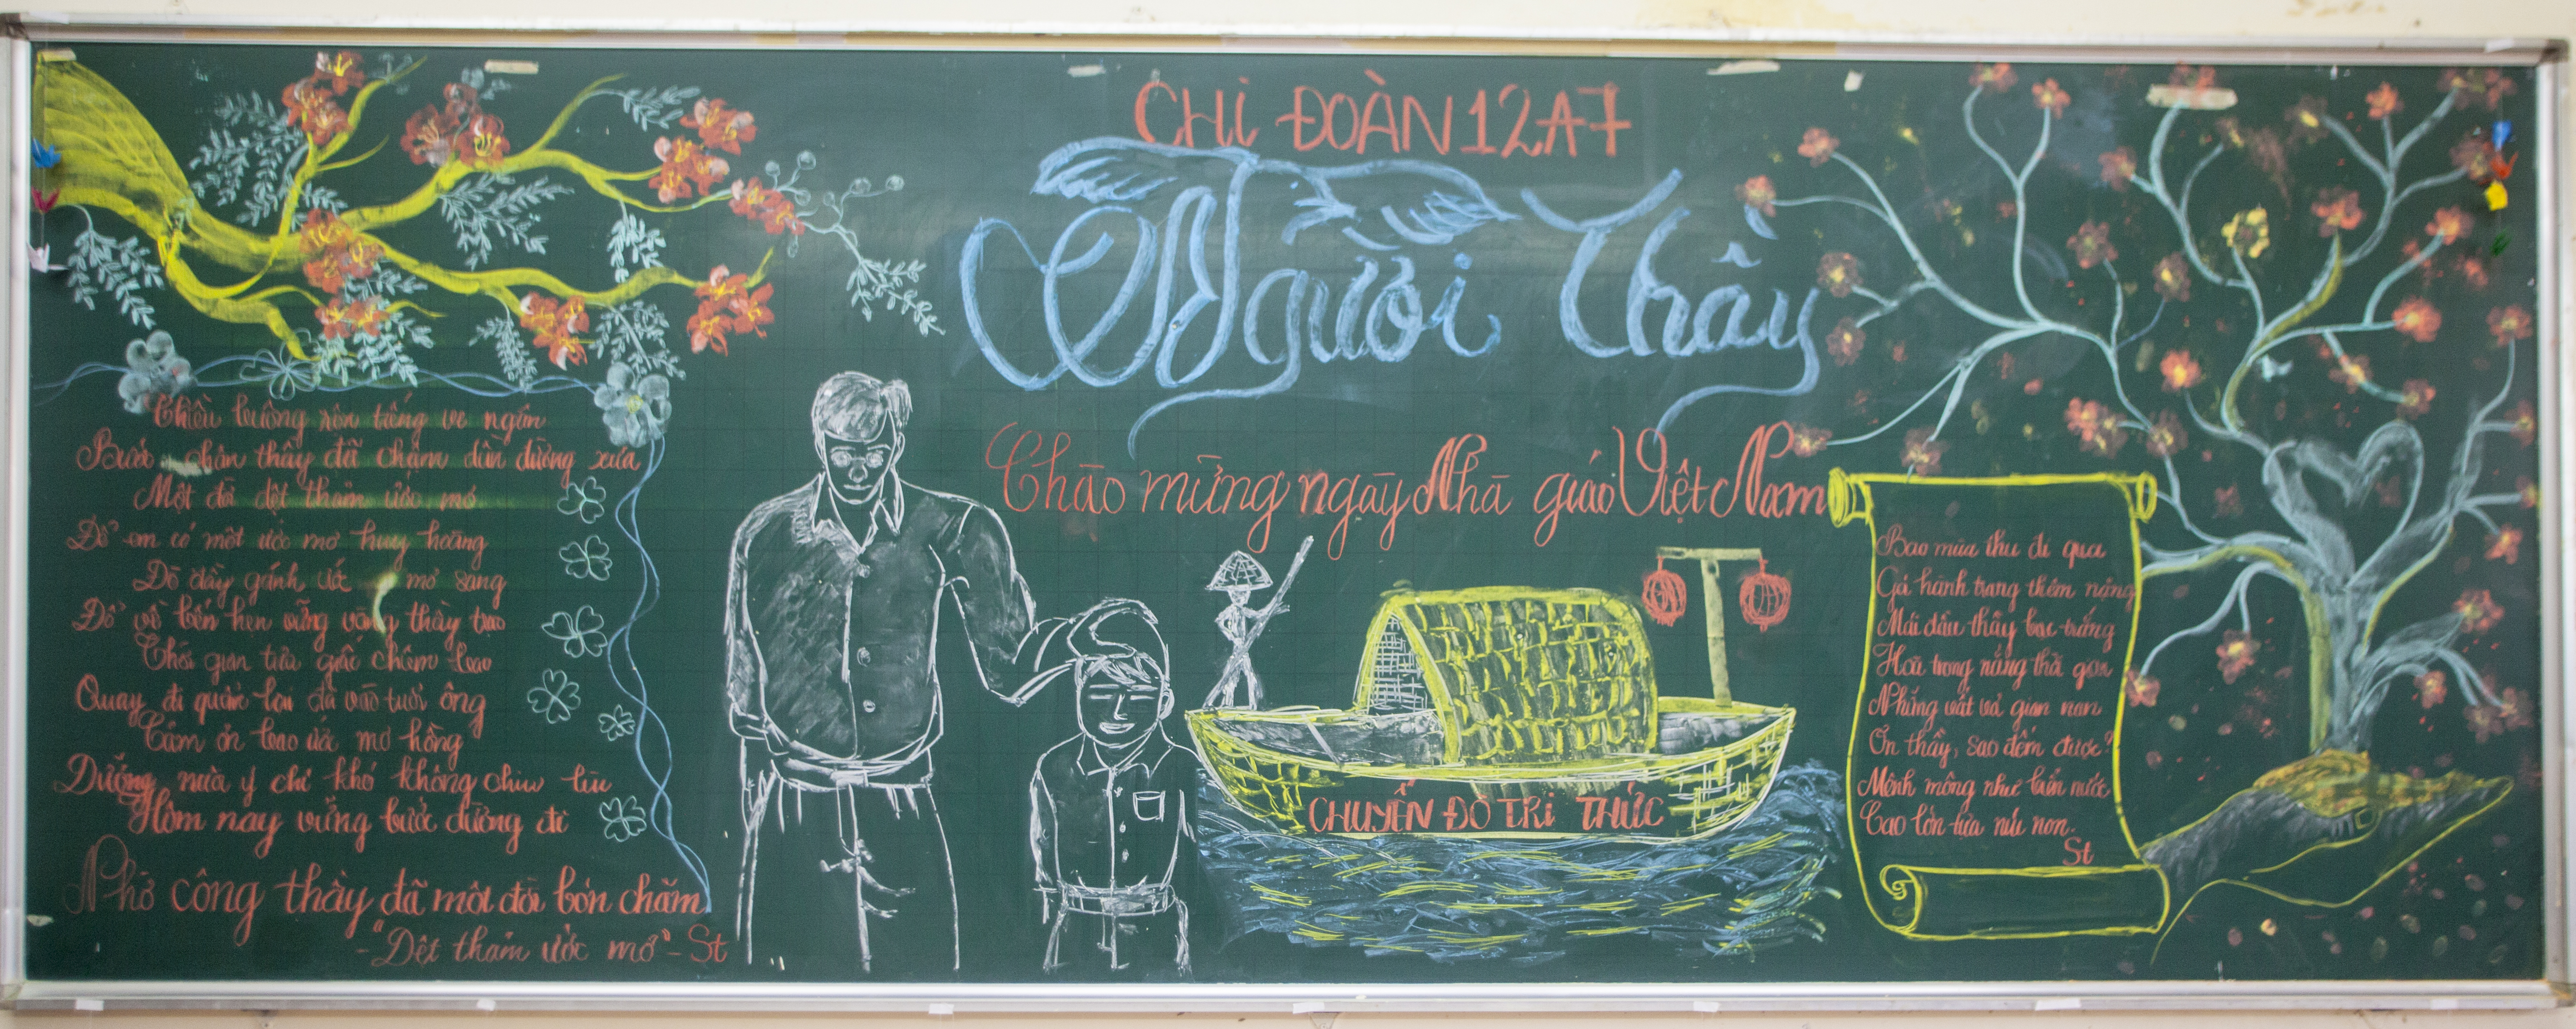 CHI ĐOÀN 12A7
Người Thầy
Chào mừng ngày Nhà giáo Việt Nam
Chiều buông rộn tiếng ve ngân
Bước chân thầy đã chạm dần đường xưa
Một đời dệt thảm ước mơ
Để em có một ước mơ huy hoàng
Đò đầy gánh ước mơ sang
Để về bến hẹn vững vàng thầy trao
Thời gian tựa giấc chiêm bao
Quay đi quản lại đã vào tuổi ông
Cám ơn bao ước mơ hồng
Đường nửa ý chí khó không chịu lùi
Hôm nay vững bước đường đi
Nhờ công thầy đã một đời bón chăm
-"Dệt thảm ước mơ"- St
CHUYẾN ĐÒ TRI THỨC
Bao mùa thu đi qua
Gả hành trang thêm nặng
Mái đầu thầy bạc trắng
Hoà trong nắng thả gọn
Những vất vả gian nan
Ơn thầy, sao đếm được?
Mênh mông như biển nước
Cao lớn tựa núi non.
St